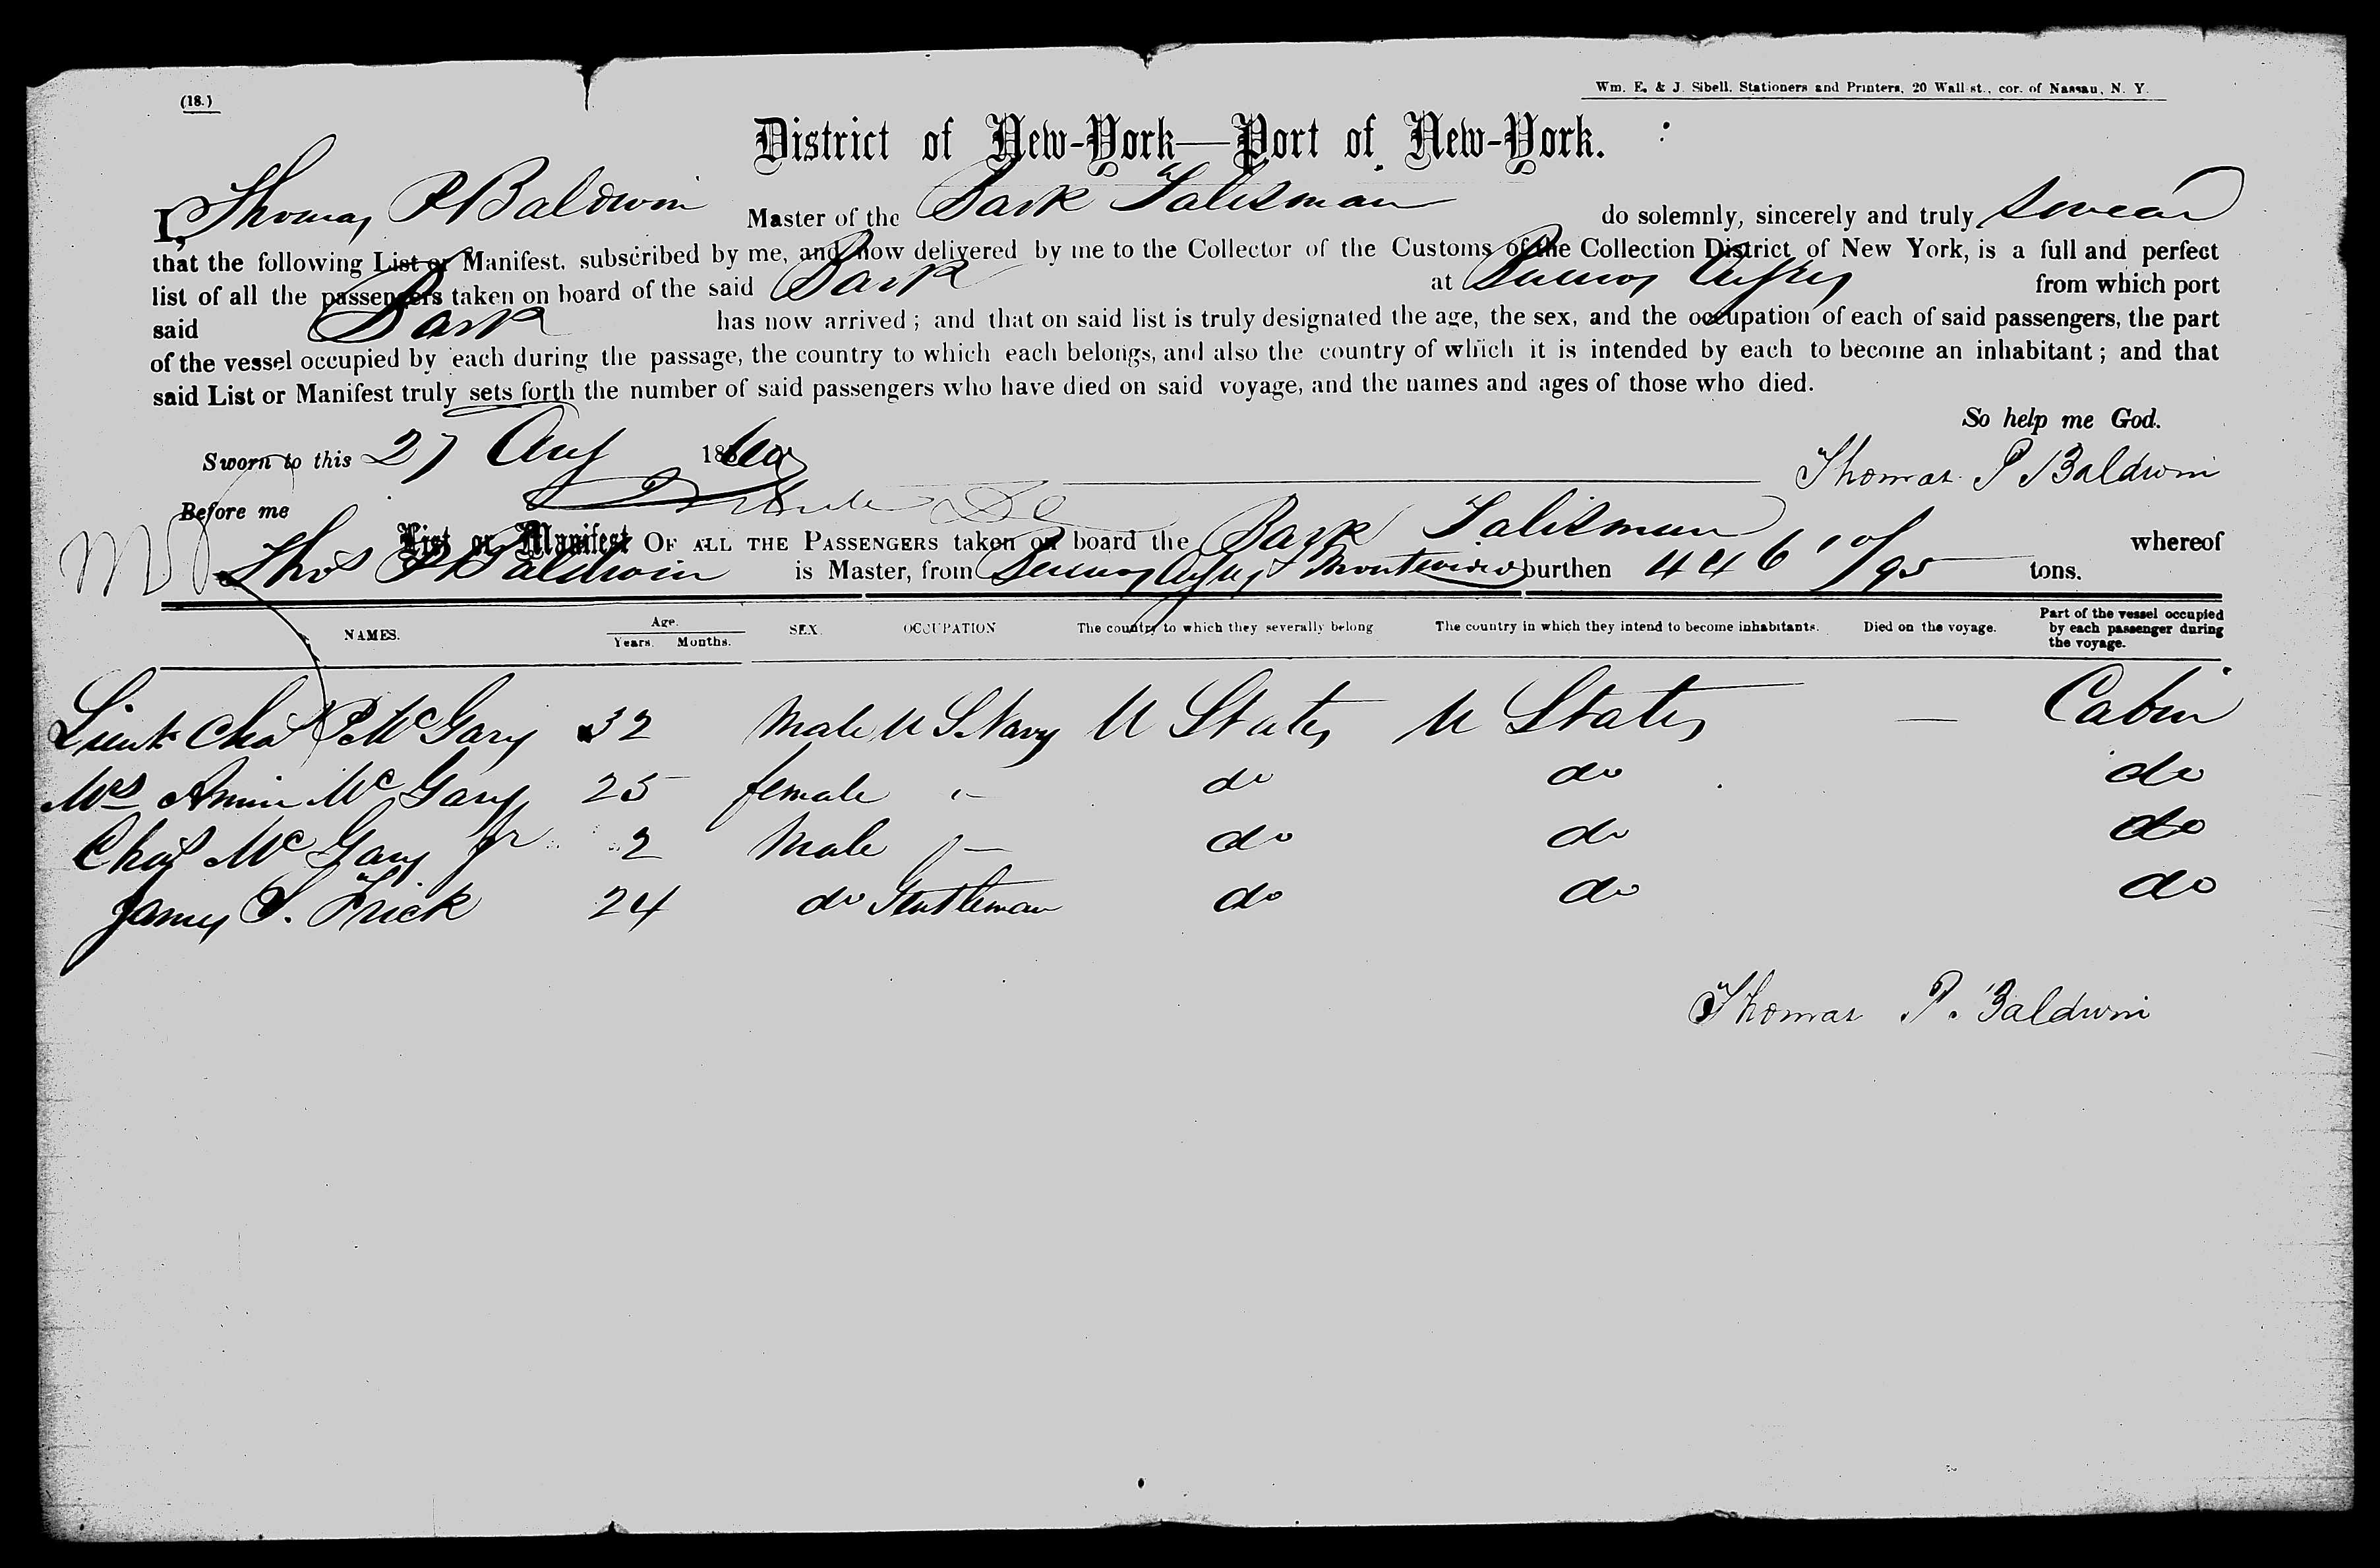 (18.)
Wm. E. & J. Sibell, Stationers and Printers, 20 Wall st., cor. of Nassau, N. Y.
District of New-York—Port of New-York.
I, Thomas P Baldwin Master of the Bark Talisman do solemnly, sincerely and truly swear
that the following List or Manifest, subscribed by me, and now delivered by me to the Collector of the Customs of the Collection District of New York, is a full and perfect
list of all the passengers taken on board of the said Bark at Buenos Ayres from which port
said Bark has now arrived; and that on said list is truly designated the age, the sex, and the occupation of each of said passengers, the part
of the vessel occupied by each during the passage, the country to which each belongs, and also the country of which it is intended by each to become an inhabitant; and that
said List or Manifest truly sets forth the number of said passengers who have died on said voyage, and the names and ages of those who died.
So help me God.
Sworn to this 27 Aug 1860
Thomas P Baldwin
Before me
List or Manifest OF ALL THE PASSENGERS taken on board the Bark Talisman whereof
Thos P Baldwin is Master, from Buenos Ayres & Montevideo burthen 446 10/95 tons.
NAMES. Age. Years. Months. SEX. OCCUPATION The country to which they severally belong The country in which they intend to become inhabitants. Died on the voyage. Part of the vessel occupied by each passenger during the voyage.
Lieut Chas P. McGary 32 Male U S. Navy U States U States — Cabin
Mrs McGary 25 female " — do do do
Chas McGary Jr 2 Male " — do do do
James S. Frick 24 do Gentleman do do do
Thomas P. Baldwin